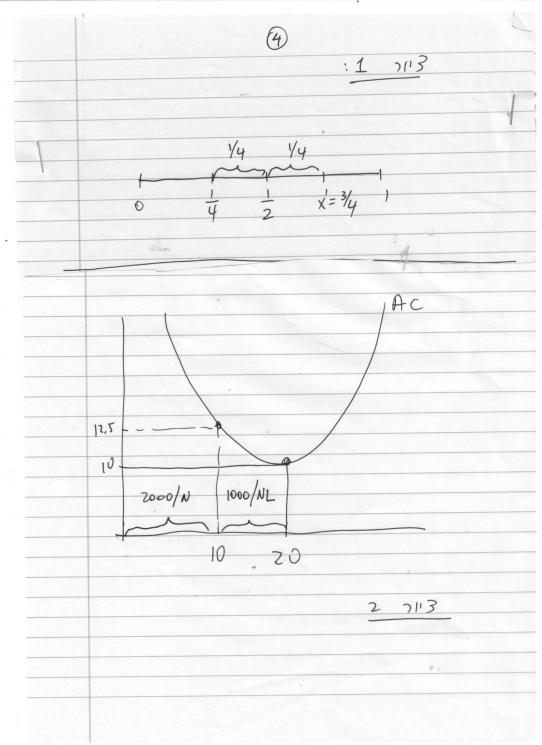 4
ציור 1:
1/4 1/4
0 1/4 1/2 x=3/4 1
AC
12.5
10
2000/N 1000/NL
10 20
ציור 2